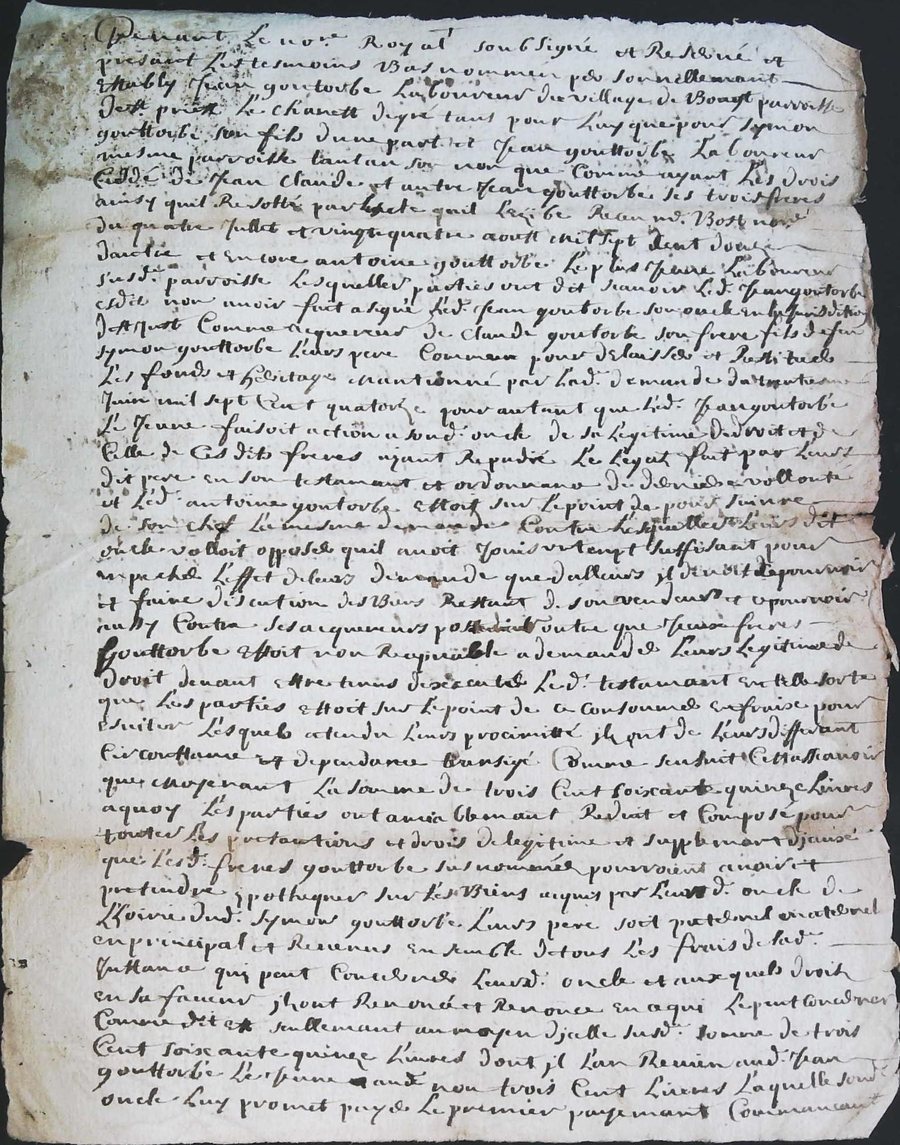 Pernant Le nore Royal soubsigné et Reserué et
presant Les tesmoins Bas nommén personnellemant
estably Jean gouttorbe Laboureur du village de Bost parroisse
de st priest Le chanett de gré tans pour Luy que pour Symon
gouttorbe son fils d'une part et Jean gouttorbe Laboureur
mesme parroisse tantan son non que Comme ayant Les drois
Ceddé de Jean Claude et autre Jean gouttorbe ses trois freres
ainsy quil Resotte par Lacte quil Recu Bost nore
du quatre Jullet et vingt quatre aoust mil sept Cent douze
dautre et Encore antoine gouttorbe Le plus Jeune Laboureur
susd: parroisse Lesquelles parties ont dit scauoir Led. Jean goutorbe
esdit non auoir fait asigné Led. Jean goutorbe son oncle En La Jurisdition
de st Just Comme acquereur de Claude goutorbe son frere fils de feu
Symon gouttorbe Leurs pere Commun pour delaisser et Restituer
Les fonds et heritage mantionné par Lad. demande du
Juin mil sept Cent quatorze pour autant que Led. Jean goutorbe
Le Jeune faisoit action a sond. oncle de sa Legitime de droit et de
Celle de Ces dits freres ayant Repudié Le Legat fait par Leurs
dit pere en son testamant et ordonnance de derniere vollonté
et Led. antoine goutorbe estoit sur Le point de poursuiure
de son chef La mesme demande Contre Lesquelles Leurs dit
oncle volloit opposer quil auoit Jouis vn tempt suffisant pour
enpecher Leffet de Leurs demande que dalleurs jl deuoit se pouruoir
et faire discution des Biens Restant de son vendeur et se pouruoir
aussy Contre ses acquereurs outre que Jean freres
gouttorbe estoit non Receuable a demander Leurs Legitime de
droit deuant estre tenus dexecuter Led. testamant en telle sorte
que Les parties estoit sur Le point de ce Consommer en fraise pour
esuiter Lesquels atendu Leurs proximitté jls ont de Leurs differant
Circonstance et dependance transigé Comme sensuit Cest a scauoir
que moyenant La somme de trois Cent soixante quinze Liures
a quoy Les parties ont amiablemant Reduit et Composé pour
toutes Les pretantions et drois de legitime et supplemant djcelle
que Lesd. freres gouttorbe susnommés pourroient auoir et
pretendre ypothequer sur Les Biens acquis par Leurs d. oncle de
Lhoirie dud. Symon gouttorbe Leurs pere soit paternel maternel
en principal et Reuenus Ensemble de tous Les frais de Lad.
Justance qui peut Concerner Leursd. oncle et auxquels drois
en sa faueur jls ont Renoncé et Renonce en ce qui Le peut Concerner
Comme dit est seullemant au moyen djcelle susd. somme de trois
Cent soixante quinze Liures dont jl Lan Reuien aud. Jean
gouttorbe Le Jeune aud. non trois Cent Liures Laquelle sond.
oncle Luy promet payer Le premier payemant Commancant